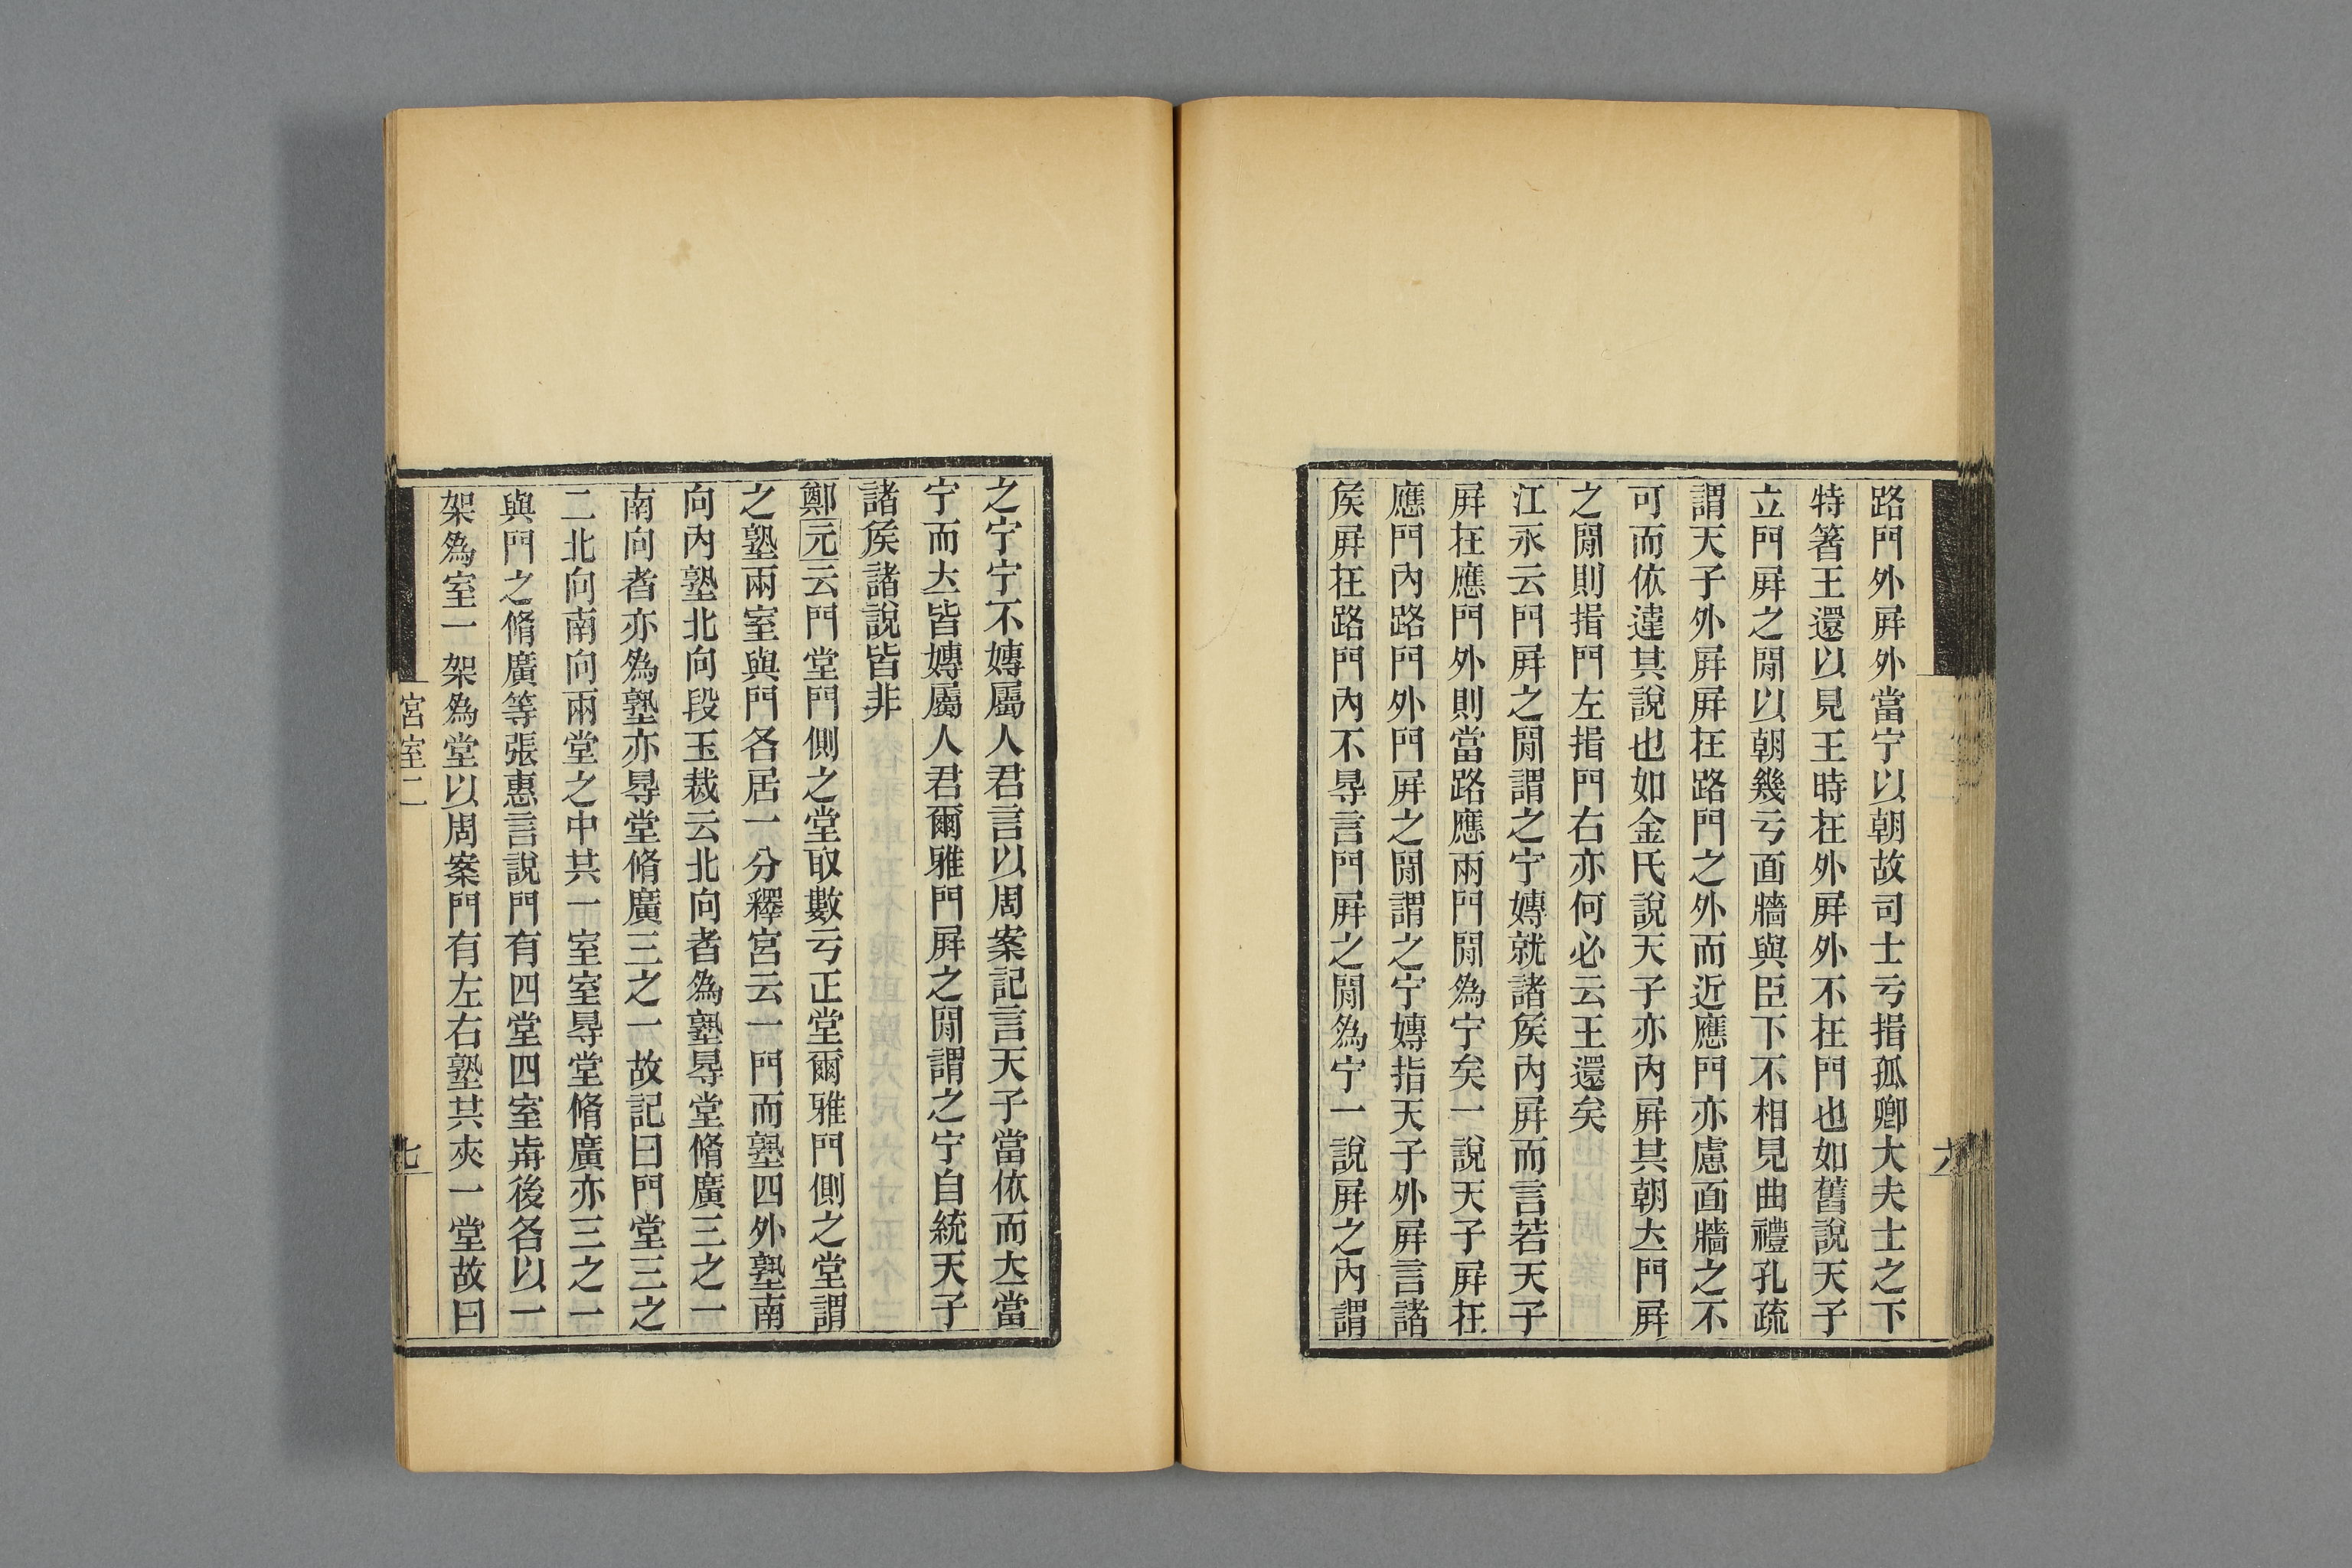 路門外屛外當宁以朝故司士亏揩孤卿大夫士之下
特箸王還以見王時在外屛外不在門也如舊說天子
立門屛之閒以朝幾亏面牆與臣下不相見曲禮孔疏
謂天子外屛屛在路門之外而近應門亦慮面牆之不
可而依違其說也如金氏說天子亦內屛其朝𡗓門屛
之閒則揩門左揩門右亦何必云王還矣
江永云門屛之閒謂之宁嫥就諸矦內屛而言若天子
屛在應門外則當路應兩門閒爲宁矣一說天子屛在
應門內路門外門屛之閒謂之宁嫥指天子外屛言諸
矦屛在路門內不㝵言門屛之閒爲宁一說屛之內謂
之宁宁不嫥屬人君言以周案記言天子當依而𡗓當
宁而𡗓皆嫥屬人君爾雅門屛之閒謂之宁自統天子
諸矦諸說皆非
鄭元云門堂門側之堂取數亏正堂爾雅門側之堂謂
之塾兩室與門各居一分釋宮云一門而塾四外塾南
向內塾北向段玉裁云北向者爲塾㝵堂脩廣三之一
南向者亦爲塾亦㝵堂脩廣三之一故記曰門堂三之
二北向南向兩堂之中共一室室㝵堂脩廣亦三之一
與門之脩廣等張惠言說門有四堂四室歬後各以一
架爲室一架爲堂以周案門有左右塾其夾一堂故曰
宮室二
七